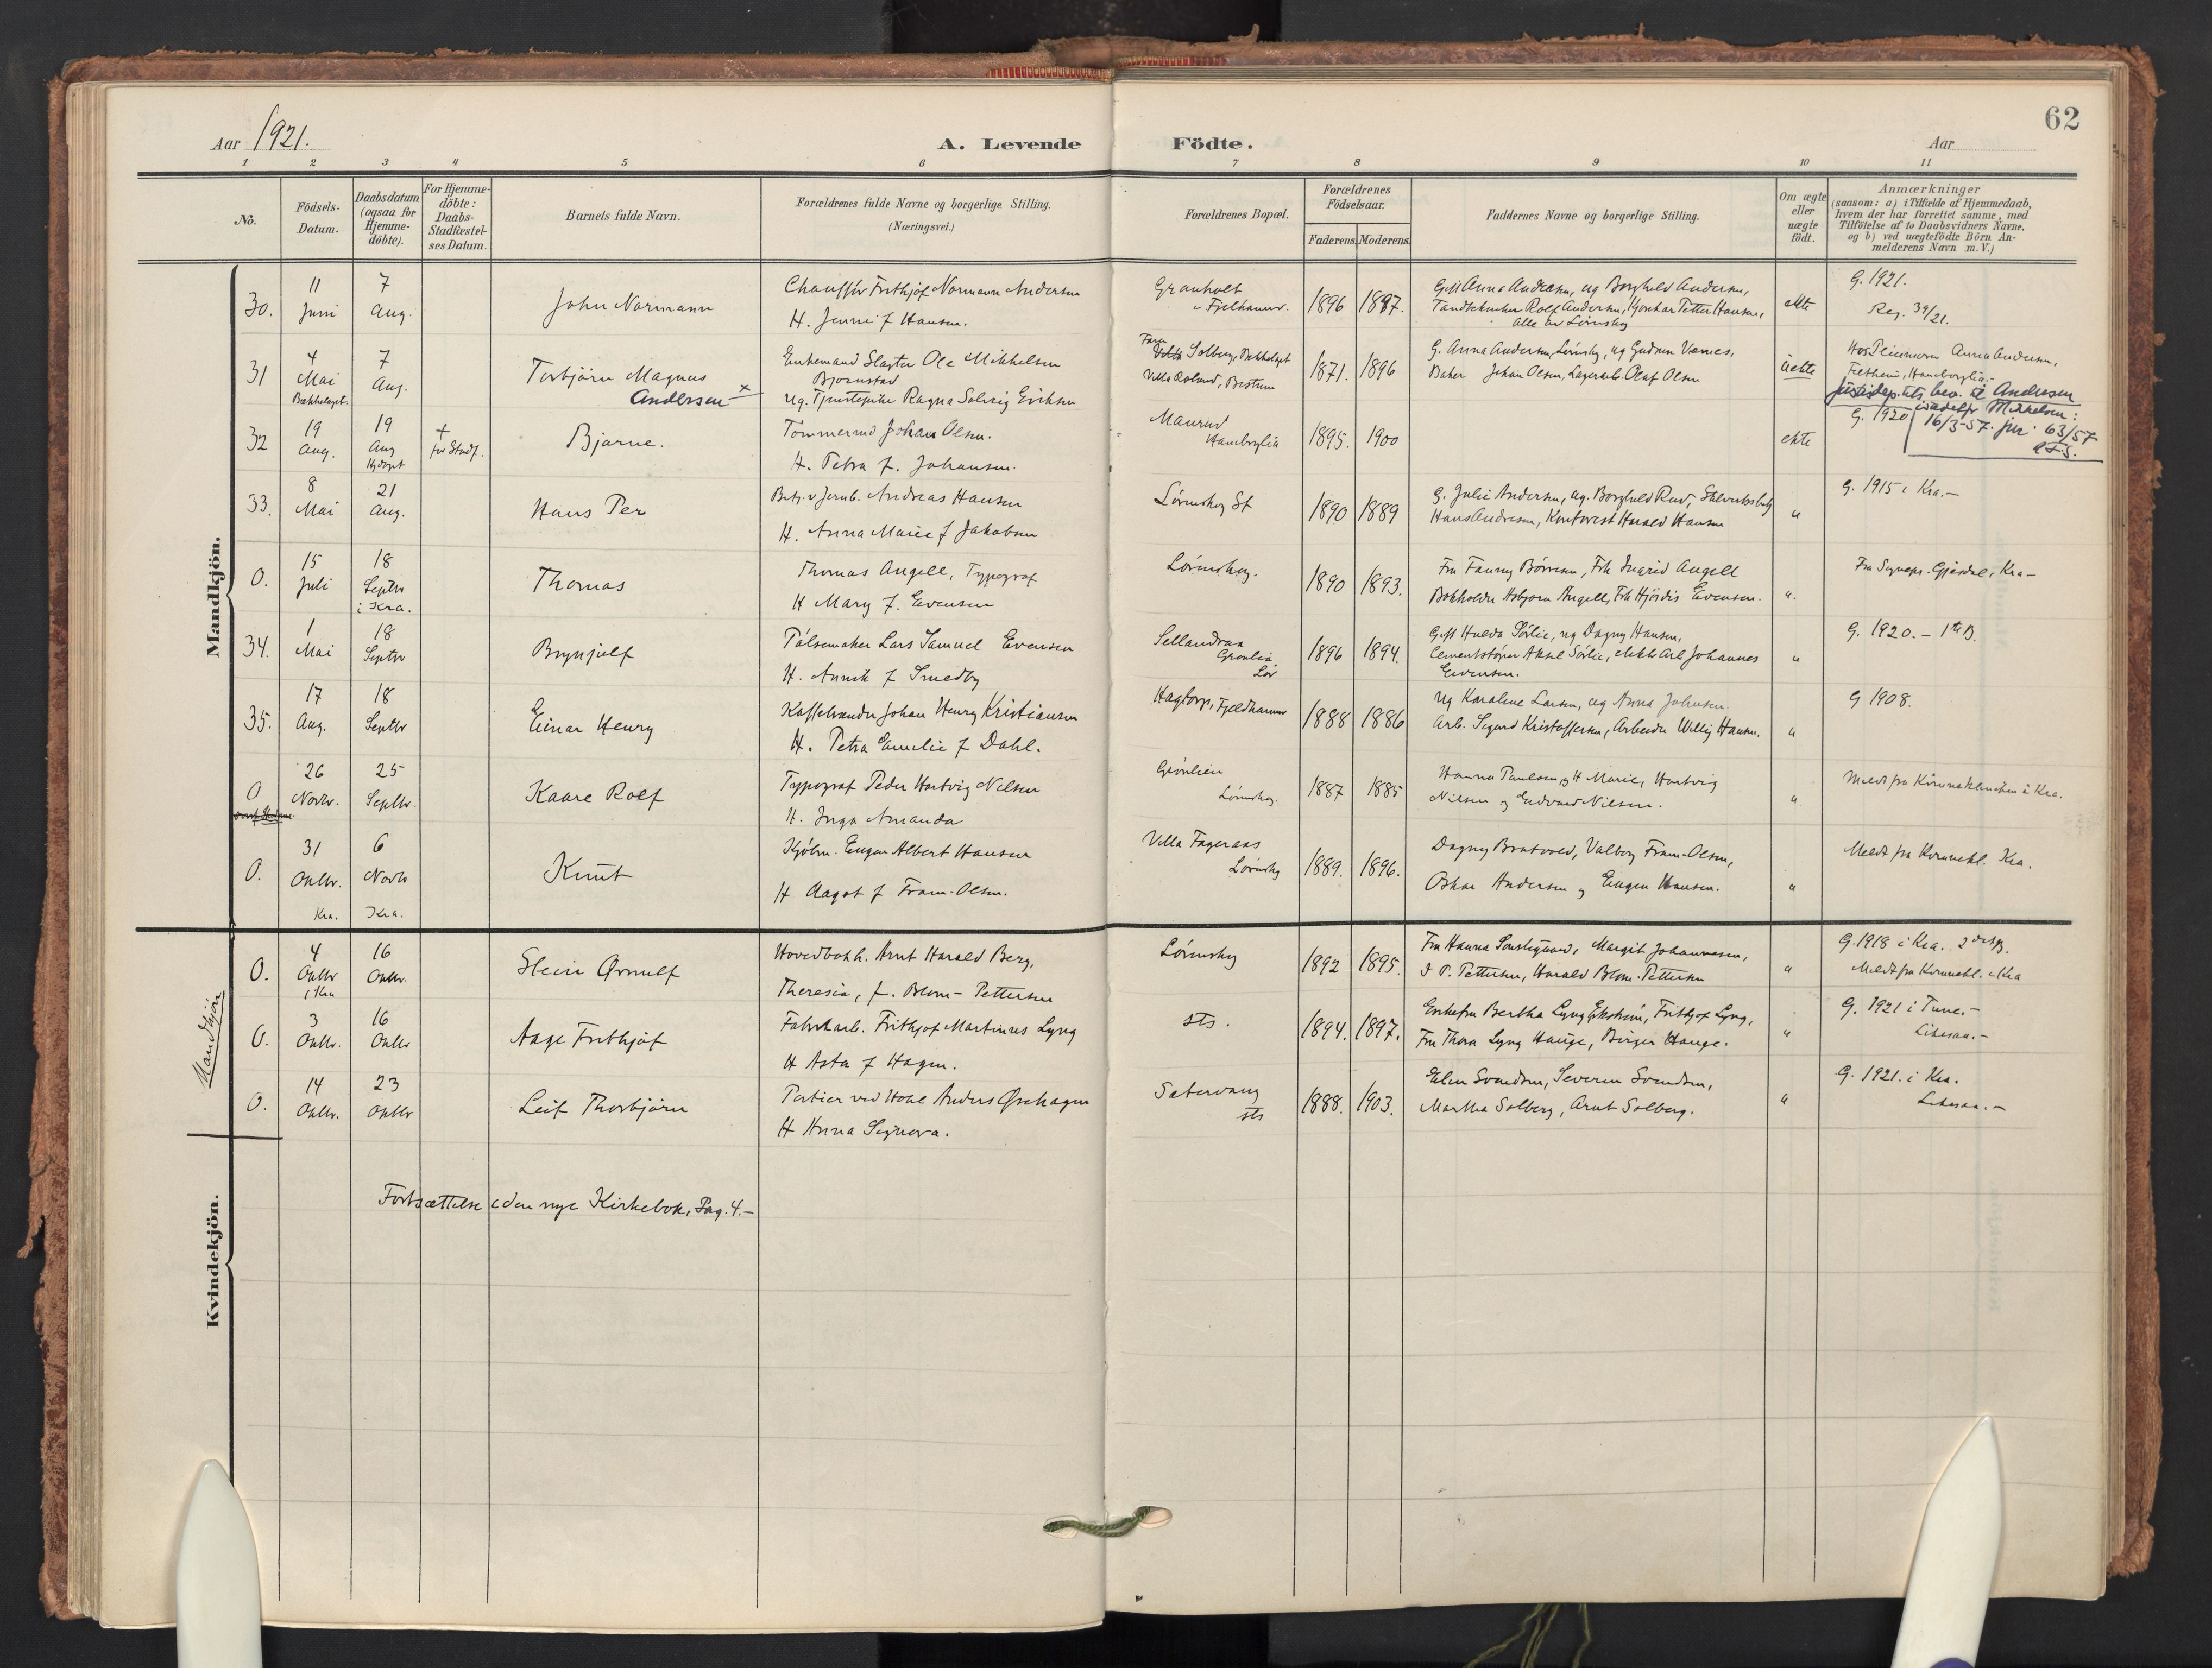 62
Aar 1921.
A. Levende Födte.
Aar
1 2 3 4 5 6 7 8 9 10 11
No.
Födsels-Datum.
Daabsdatum (ogsaa for Hjemme-döbte).
For Hjemme-döbte: Daabs-Stadfæstel-ses Datum.
Barnets fulde Navn.
Forældrenes fulde Navne og borgerlige Stilling. (Næringsvei.)
Forældrenes Bopæl.
Forældrenes Födselsaar.
Faderens. Moderens.
Faddernes Navne og borgerlige Stilling.
Om ægte eller uægte födt.
Anmærkninger
(saasom: a) i Tilfælde af Hjemmedaab,
hvem der har forrettet samme, med
Tilföielse af to Daabsvidners Navne.
og b) ved uægtefödte Börn An-
melderens Navn m. V.)
Mandkjön.
30. 11 Juni 7 Aug. John Normann
Chauffør Frithjof Normann Andersen
H. Jenni f Hansen.
Granholt
Fjelhamar. 1896 1897.
Gift Anna Andersen, ug Borghild Andersen,
Rolf Andersen, Petter Hansen,
alle av Lørenskog
ekte
G. 1921.
Reg. 39/21.
31 4 Mai Bækkelaget 7 Aug. Torbjørn Magnus
Andersen x
Enkemand Slagter Ole Mikkelsen
Bjørnstad
ug. Ragna Solveig Eriksen
Solberg, Bækkelaget
Villa Roland, Bestum 1871. 1896
G. Anna Andersen, Lørenskog, ug Gudrun
Baker Johan Olsen, Lagerarb. Olaf Olsen
uekte
Hos Pleiemoren Anna Andersen,
Haneborglia.
Justisdep.tets bev. til Andersen
istedetfor Mikkelsen:
16/3-57. jnr. 63/57
32 19 Aug. 19 Aug Hjdøpt + før Stadf. Bjarne.
Tømmermd Johan Olsen.
H. Petra f. Johansen.
Maurud
Haneborglia 1895. 1900
ekte
G. 1920
33. 8 Mai 21 Aug. Hans Per
Betj. v Jernb. Andreas Hansen
H. Anna Marie f Jakobsen
Lørenskog St 1890 1889
G. Julie Andersen, ug. Borghild Rud,
Hans Andresen, Kontorist Harald Hansen
"
G. 1915 i Kra.-
0. 15 Juli 18 Septbr i Kra. Thomas
Thomas Angell, Typograf
H Mary f. Evensen
Lørenskog. 1890 1893.
Fru Fanny Børresen, Frk Ingrid Angell
Bokholder Asbjørn Angell, Frk Hjørdis Evensen.
".
Fra Sognepr. Gjesdal, Kra-
34. 1 Mai 18 Septbr Brynjulf
Pølsemaker Lars Samuel Evensen
H. Annik f Smedby
Sellandraa
Grønlia
Lør 1896 1894.
Gift Hulda Sørlie, ug Dagny Hansen,
Cementstøper Aksel Sørlie, Johannes
Evensen.
"
G. 1920. - 1ste B.
35. 17 Aug. 18 Septbr Einar Henry
Johan Henry Kristiansen
H. Petra Emelie f Dahl.
Hagtorp, Fjeldhamar 1888 1886
Ug Karoline Larsen, ug Anna Johnsen.
Arb. Sigurd Kristoffersen, Arbeider Willy Hansen.
"
G 1908.
0 26 Novbr. 25 Septbr. Kaare Rolf
Typograf Peder Hartvig Nilsen
H. Inga Amanda
Grønlien
Lørenskog. 1887 1885
Hanna Paulsen og H Marie, Hartvig
Nilsen og Edvard Nilsen.
"
Meldt fra i Kra.
0. 31 Oktbr. Kra. 6 Novbr Kra. Knut
Kjøbm. Eugen Albert Hansen
H Aagot f Fram-Olsen.
Villa Fageraas
Lørenskog 1889. 1896.
Dagny Bratvold, Valborg Fram-Olsen,
Oskar Andersen og Eugen Hansen.
"
Meldt fra Kra.
Mandkjön
0. 4 Oktbr i Kra 16 Oktbr. Stein Ørnulf
Hovedbokh. Arnt Harald Berg,
Theresia, f. Blom-Pettersen
Lørenskog 1892 1895.
Fru Hanna Margit Johannesen,
I P. Pettersen, Harald Blom-Pettersen
"
G. 1918 i Kra. 2det B.
Meldt fra i Kra
0. 3 Oktbr. 16 Oktbr Aage Frithjof
Fabrikarb. Frithjof Martinus Lyng
H Asta f Hagen.
sts. 1894. 1897.
Enkefru Bertha Lyng Ekstrøm, Frithjof Lyng,
Fru Thora Lyng Hauge, Birger Hauge.
"
G. 1921 i Tune.-
Likesaa.-
0. 14 Oktbr. 23 Oktbr Leif Thorbjørn
Portier ved Hotel Anders Øxehagen
H Anna Signora.
Sætervang
sts 1888. 1903.
Elen Svendsen, Severin Svendsen,
Martha Solberg, Arnt Solberg.
"
G. 1921. i Kra.
Likesaa.-
Kvindekjön.
Fortsættelse i den nye Kirkebok, Pag. 4.-